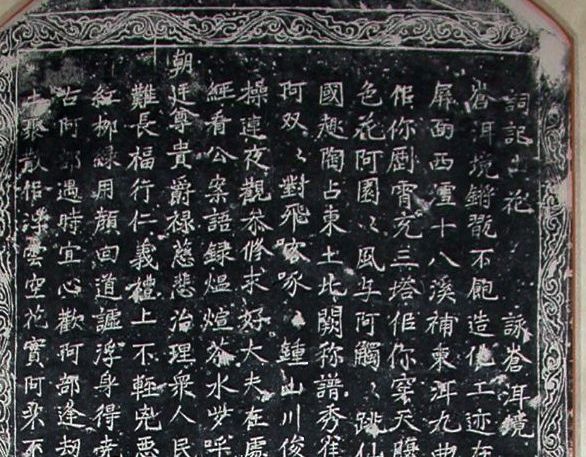 詞記山花 詠蒼洱境
蒼洱境鏘翫不飽造化工迹在
屏面西十八溪補東洱九曲
你霄充三塔你穿天腹
色花阿園〻風与阿觸〻跳仙
國趣陶占東土北闕称譜秀雀
阿双〻對飛啄〻鍾山川俊
操連夜觀恭修求好大夫在處
經看公案語録煴煊茶水岁呼
朝廷尊貴爵禄慈悲治理衆人民
難長福行仁義禮上不輕兇惡
紅柳緑用顔回道浮身得堯
古阿部遇時宜心歡阿部逢劫
聚散作浮雲空花實阿朵不